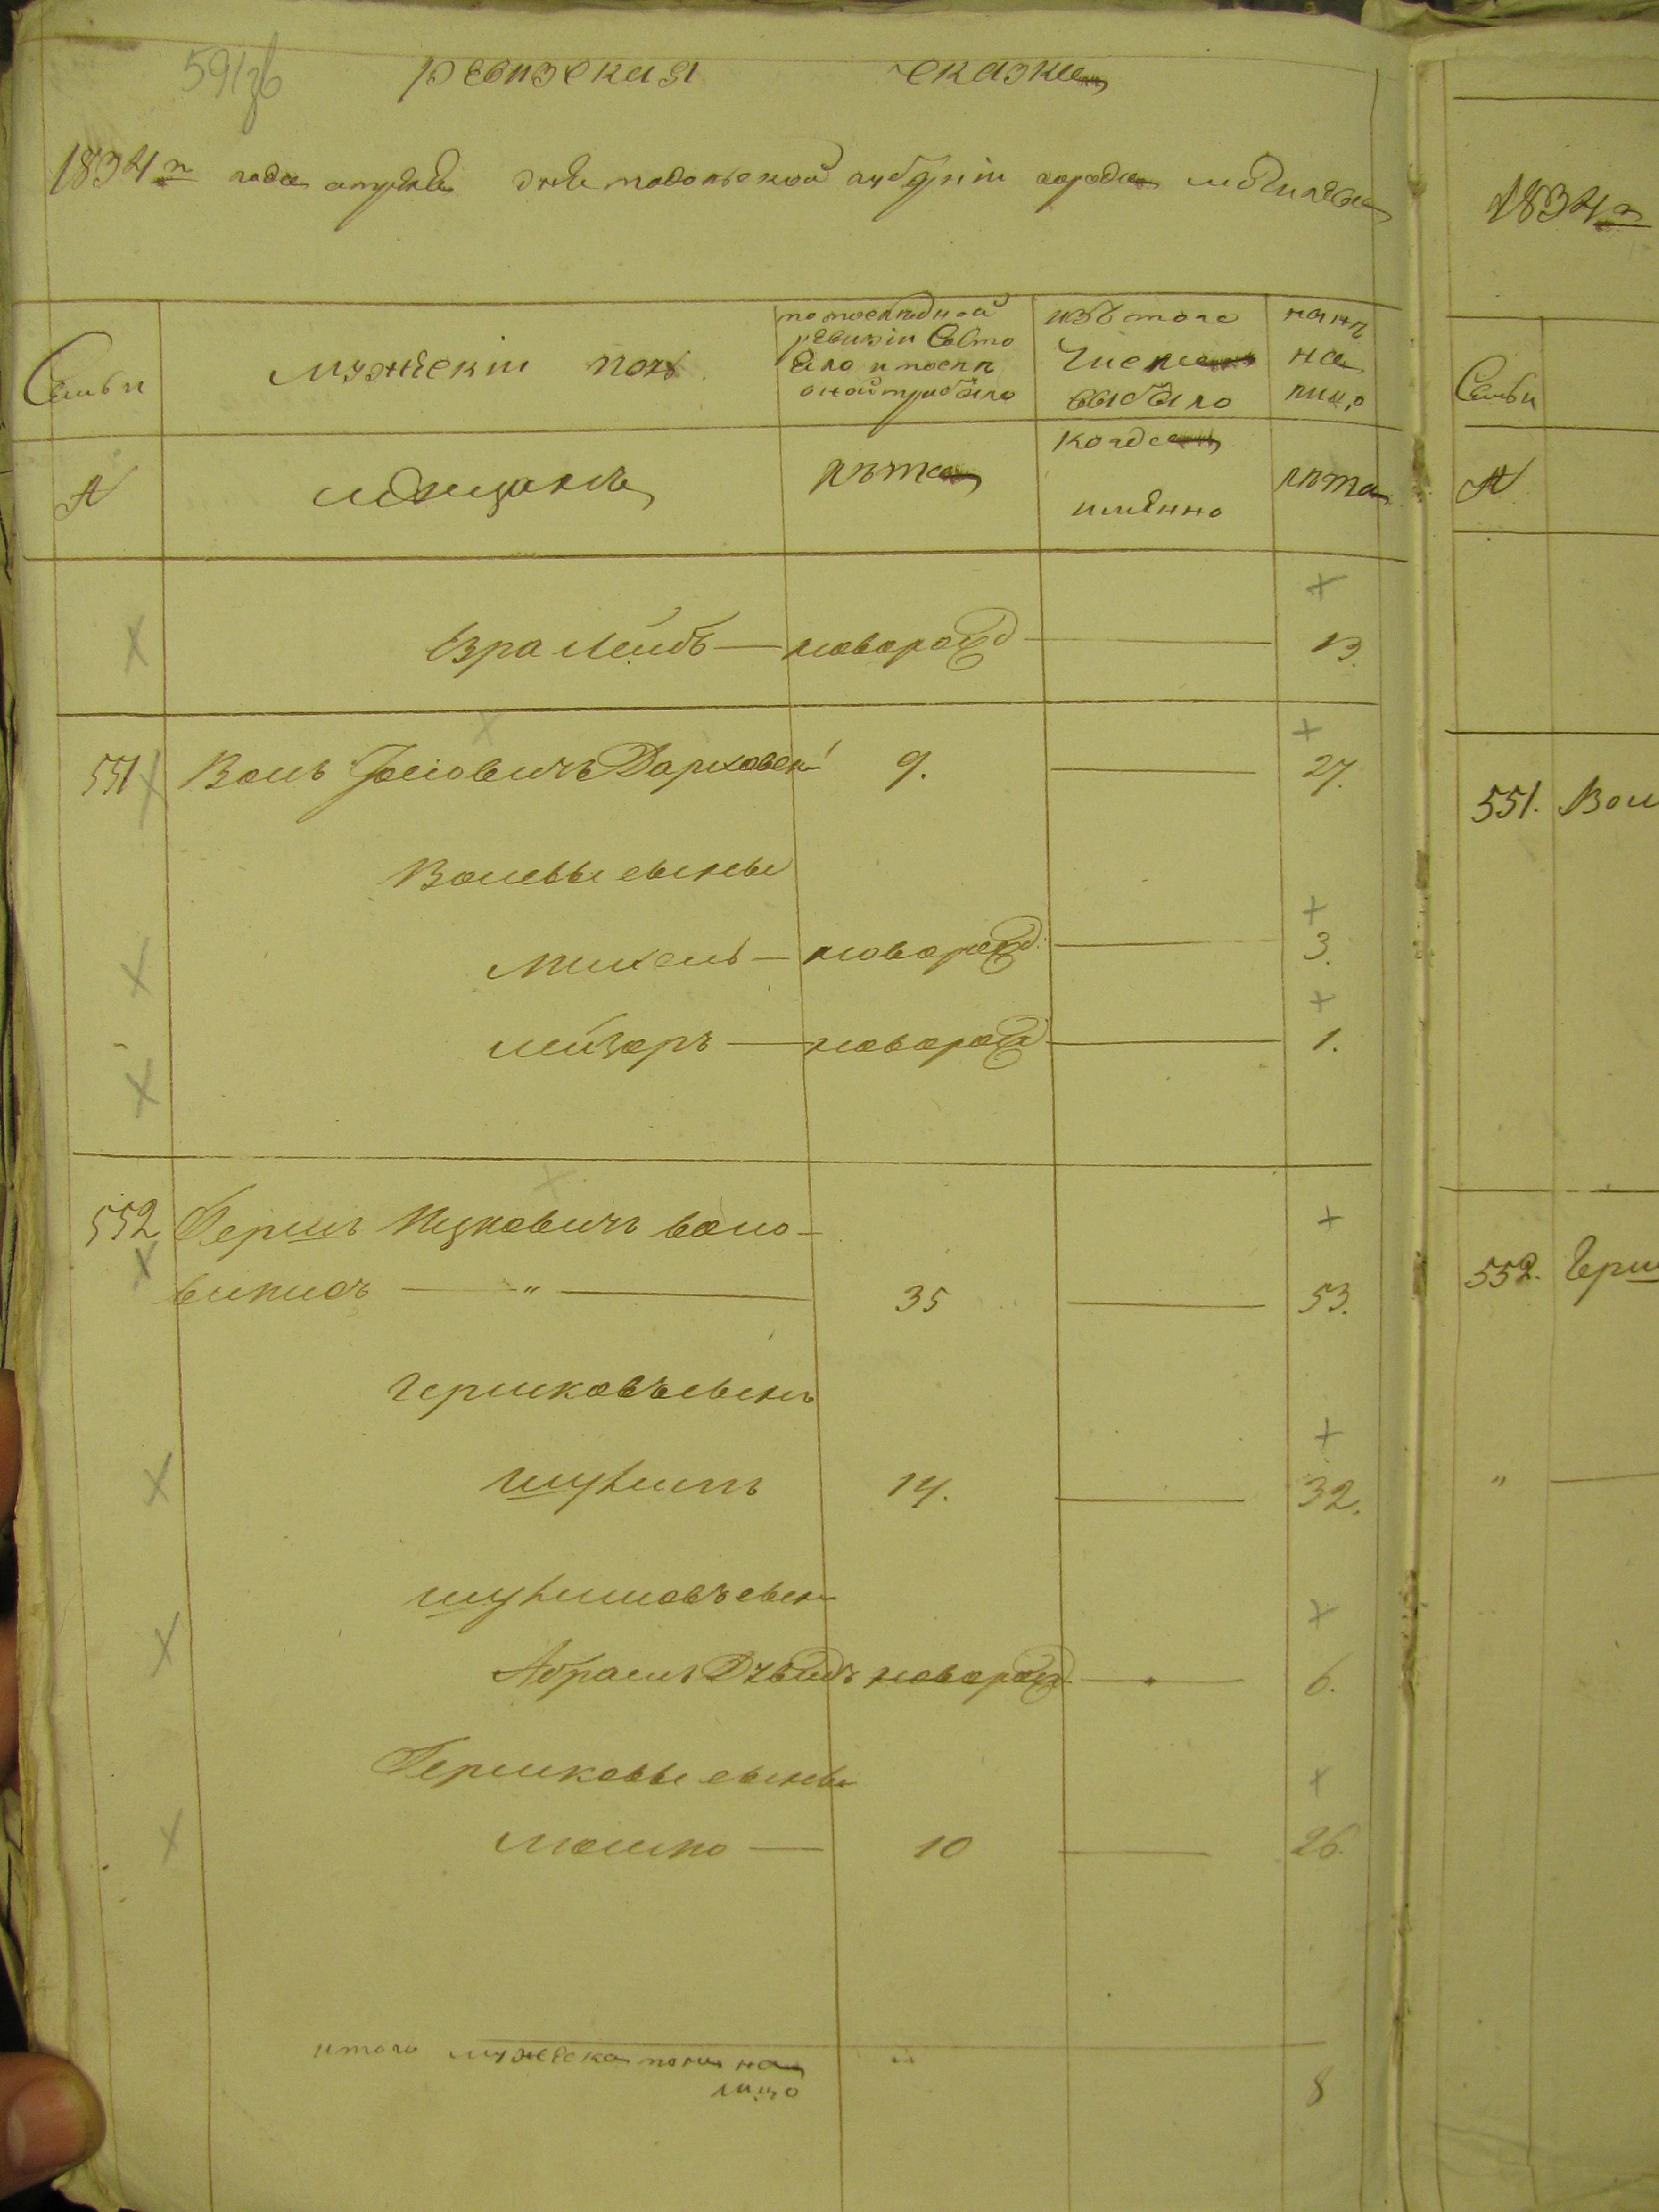 591
ревизская сказка
1834го года апреля дня подольской губерніи города могилева
Семьи
мужескій полъ
по последной
ревизіи Состо
яло и после
оной прибыло
изъ того
Числа
выбыло
нынѣ
на
лицо
№
мещанъ
лѣта
когда
именно
лѣта
Езра Лейбъ — новорожд — 13.
551 Волъ Іосіовичъ Дарховскі 9. — 27.
Волевы сыны
Михель — новорожд. — 3.
Лейзаръ — новорожд — 1.
552 Гершъ Ицковичъ воло-
— " — 35 — 53.
Гершковъ сынъ
14. — 32.
сын
Абрамъ Дувидъ новорожд — 6.
Гершковы сыны
Мошко — 10 — 26.
итого мужеска пола на
лицо
8
1834го
Семьи
№
551. Вол
552. Герш
"